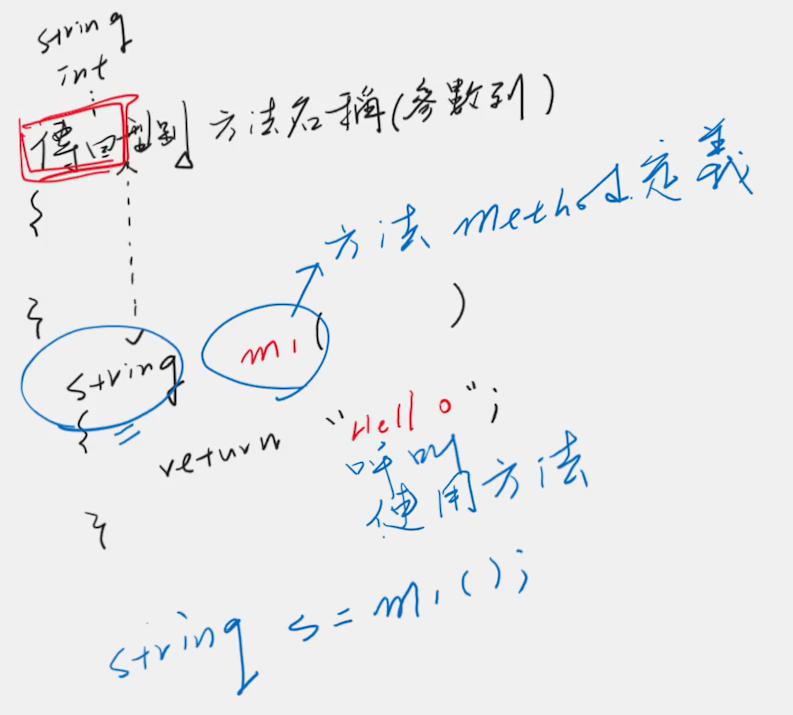 string
int
傳回型別 方法名稱(參數列)
{
方法 method 定義
}
string m1( )
{
return "Hello";
呼叫
使用方法
}
string s = m1();